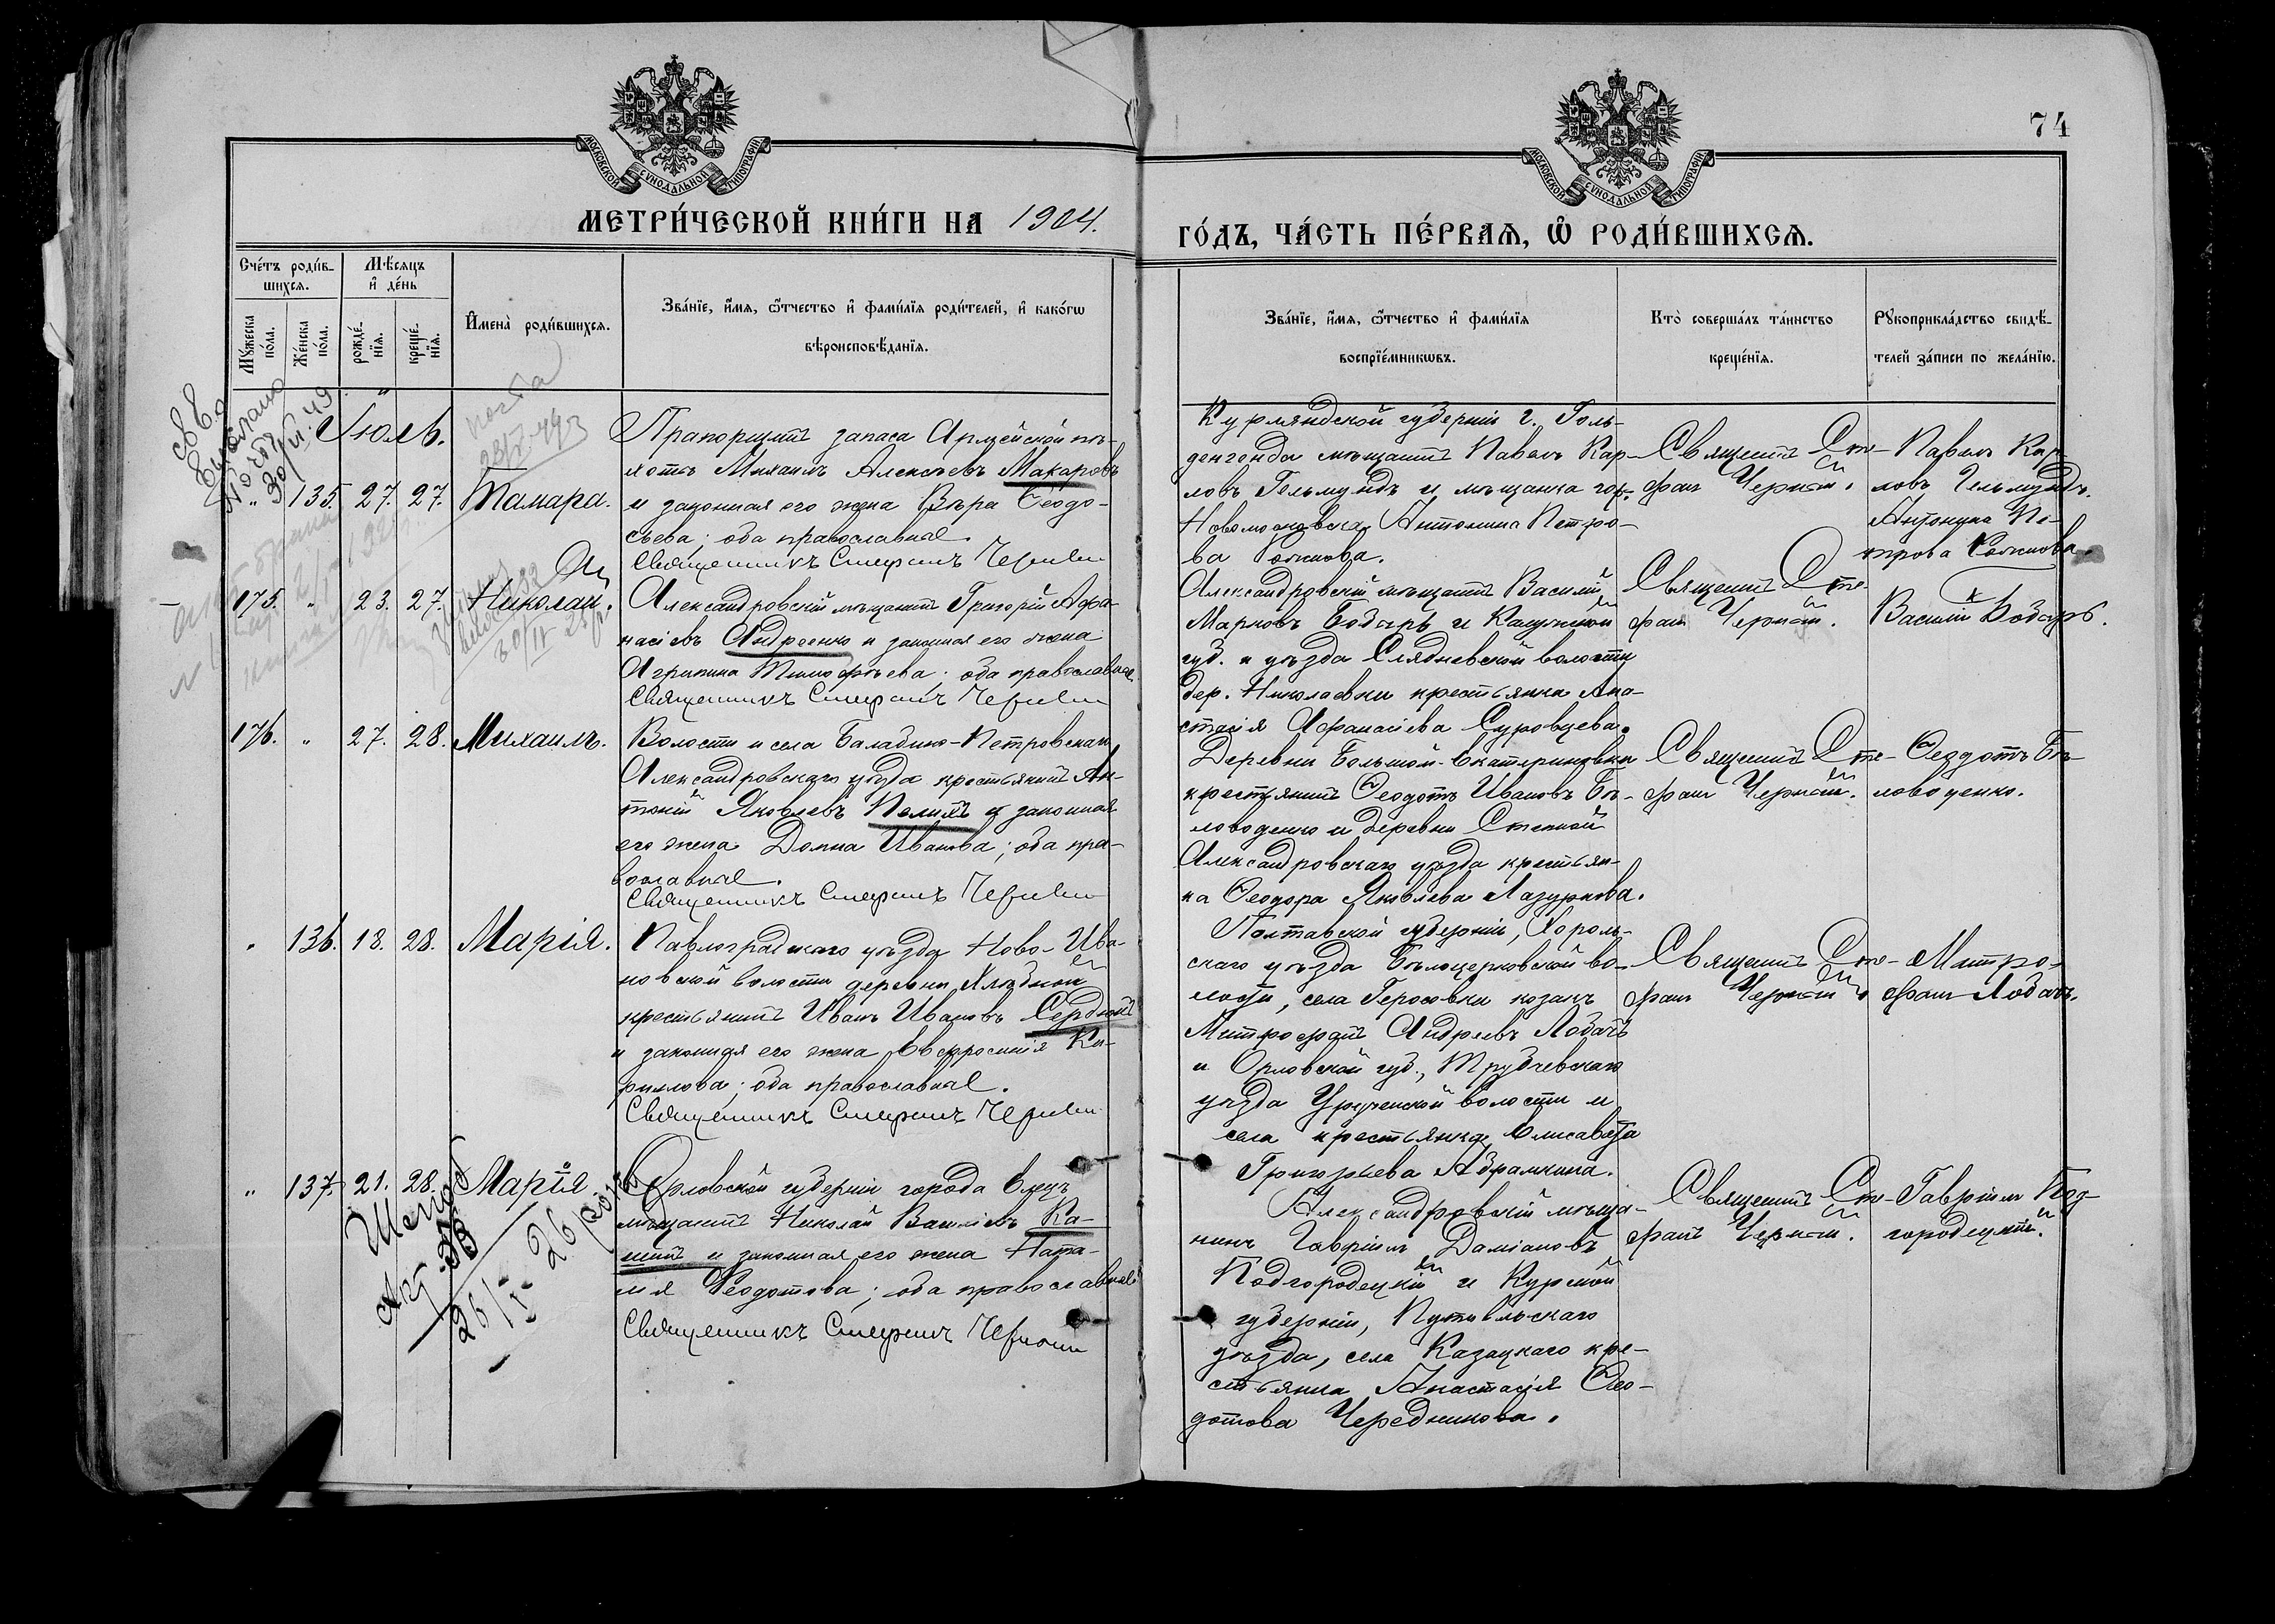 74
МОСКОВСКОЙ СУНОДАЛЬНОЙ ТИПОГРАФІИ
МОСКОВСКОЙ СУНОДАЛЬНОЙ ТИПОГРАФІИ
МЕТРИ́ЧЕСКОЙ КНИ́ГИ НА 1904.
ГО́ДЪ, ЧА́СТЬ ПЕ́РВАѦ, Ѡ҆ РОДИ́ВШИХСѦ.
Сче́тъ роди́в-
шихсѧ.
Мꙋ́жеска по́ла.
Же́нска по́ла.
Мѣ́сѧцъ
и҆ де́нь
рожде́-
нїѧ.
креще́-
нїѧ.
И҆мена̀ роди́вшихсѧ.
Зва́нїе, и҆́мѧ, ѻ҆́тчество и҆ фами́лїѧ роди́телей, и҆ како́гѡ
вѣроисповѣ́данїѧ.
Зва́нїе, и҆́мѧ, ѻ҆́тчество и҆ фами́лїѧ
воспрїе́мникѡвъ.
Кто̀ соверша́лъ та́инство
креще́нїѧ.
Рꙋкоприкла́дство свидѣ́-
телей за́писи по жела́нїю.
Іюль.
" 135. 27. 27. Тамара.
Прапорщикъ запаса Армейской пѣ-
хоты Михаилъ Алексѣевъ Макаровъ
и законная его жена Вѣра Ѳеодо-
сьева; оба православные.
Священникъ Стефанъ
Курляндской губерніи г. Голь-
дингенда мѣщанинъ Павелъ Кар-
ловъ Гельмундъ и мѣщанка гор.
Новомосковска Антонина Петро-
ва
Священникъ Сте-
фанъ
Павелъ Кар-
ловъ Гельмундъ.
Антонина Пе-
трова
175. " 23. 27. Николай.
Александровскій мѣщанинъ Григорій Афа-
насіевъ Андреенко и законная его жена
Агрипина Тимофѣева; оба православные.
Священникъ Стефанъ
Александровскій мѣщанинъ Василій
Марковъ Бодарь и Калужской
губ. и уѣзда волости
дер. Николаевки крестьянка Ана-
стасія Афанасіева Суровцева.
Священникъ Сте-
фанъ
Василій Бодарь.
176. " 27. 28. Михаилъ.
Волости и села Балабино-Петровскаго
Александровскаго уѣзда крестьянинъ Ан-
тоній Яковлевъ и законная
его жена Домна Иванова; оба пра-
вославные.
Священникъ Стефанъ
Деревни Большой-Екатериновки
крестьянинъ Ѳеодотъ Ивановъ Бѣ-
ловоденко и деревни Степной
Александровскаго уѣзда крестьян-
ка Ѳеодора Яковлева Лазуркова.
Священникъ Сте-
фанъ
Ѳеодотъ Бѣ-
ловоденко.
" 136. 18. 28. Марія.
Павлоградскаго уѣзда Ново-Ива-
новской волости деревни Хлѣбной
крестьянинъ Иванъ Ивановъ Сердюкъ
и законная его жена Евфросинія Ки-
рилова; оба православные.
Священникъ Стефанъ
Полтавской губерніи, Хороль-
скаго уѣзда Бѣлоцерковской во-
лости, села козакъ
Митрофанъ Андреевъ Лобачъ
и Орловской губ., Трубчевскаго
уѣзда Уручейской волости и
села крестьянка Елисавета
Григорьева Абрамкина.
Священникъ Сте-
фанъ
Митро-
фанъ Лобачъ.
" 137. 21. 28. Марія
Орловской губерніи города Елецъ
мѣщанинъ Николай Василіевъ Ка-
шинъ и законная его жена Ната-
лія Ѳеодотова; оба православные
Священникъ Стефанъ
Александровскій мѣща-
нинъ Гавріилъ Даміановъ
Подгородецкій и Курской
губерніи, Путивльскаго
уѣзда, села Казацкаго кре-
стьянка Анастасія Ѳео-
дотова Чередникова.
Священникъ Сте-
фанъ
Гавріилъ Под-
городецкій.